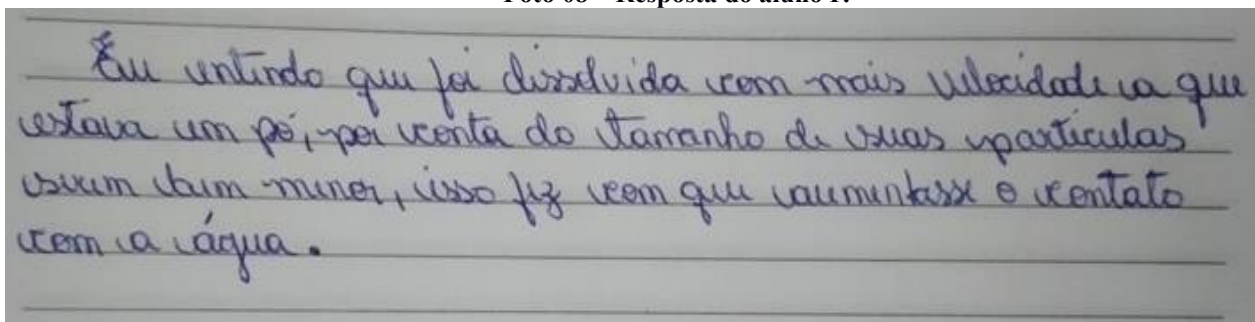 Foto 08 – Resposta do aluno F.
Eu entindo que foi dissolvida com mais velocidade a que
estava em pó, por conta do tamanho de suas partículas
serem bem menor, isso fez com que aumentasse o contato
com a água.